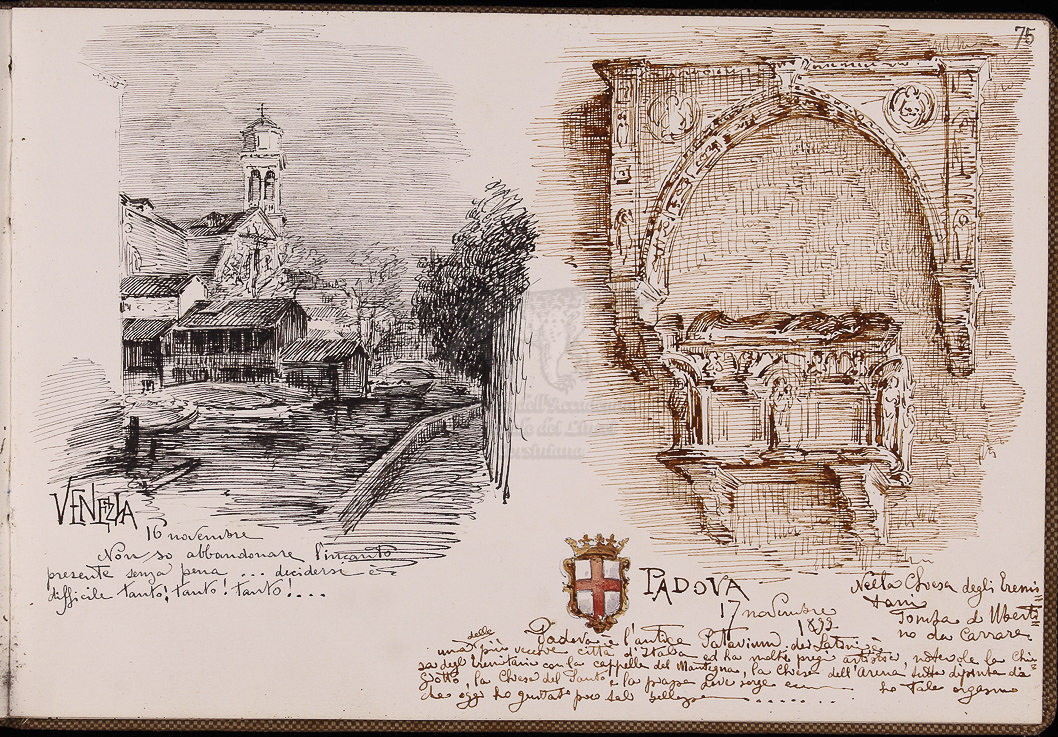 75
VENEZIA
16 novembre
Non so abbandonare l'incanto
presente senza pena ... decidersi è
difficile tanto! tanto! tanto!....
PADOVA
17 novembre
1899
Nella Chiesa degli Eremi=
tani
Tomba di Uberti=
no da Carrara.
Padova è l'antica Patavium dei Latini è
una delle più vecchie città d'Italia ed ha molti pregi artistici, notevole la Chie
sa degli Eremitani con la cappella del Mantegna, la Chiesa dell'Arena tutta dipinta da
Giotto, la Chiesa del Santo e la piazza ho tale
che oggi ho gustato poco tali bellezze